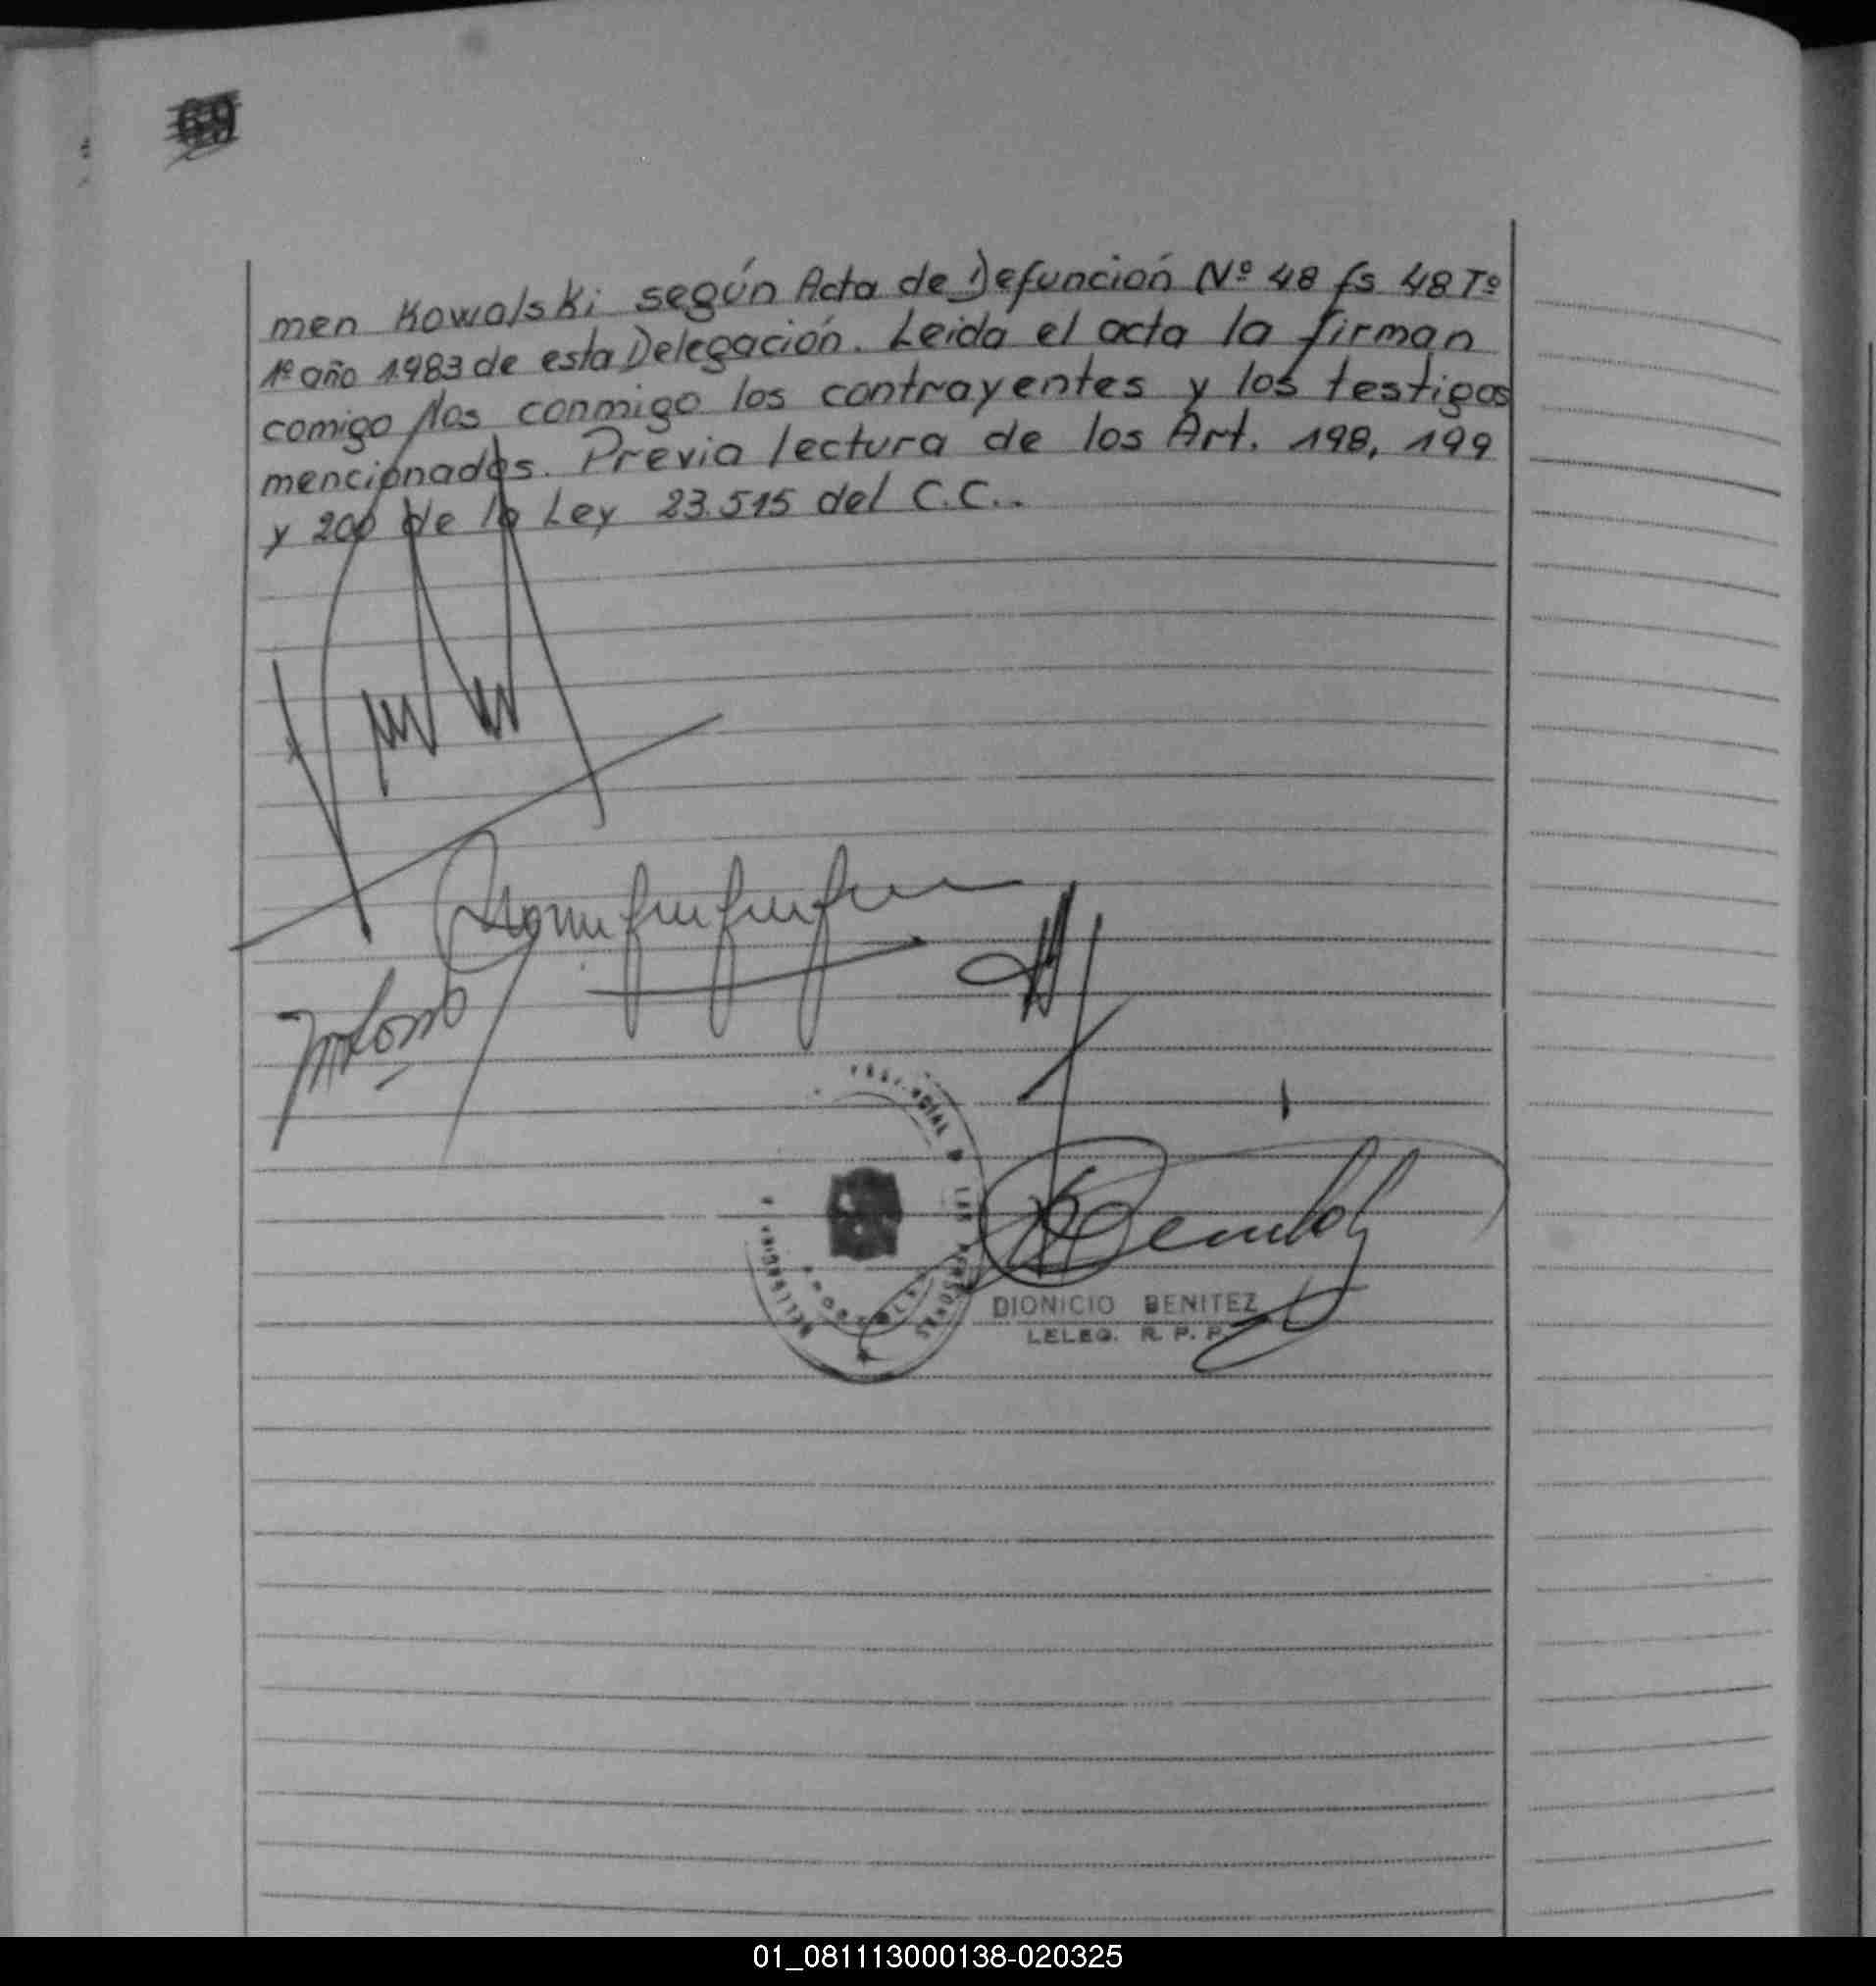 69
men Kowalski según Acta de Defunción Nº 48 fs 48 Tº
1º año 1.983 de esta Delegación. Leida el acta la firman
comigo los conmigo los contrayentes y los testigos
mencionados. Previa lectura de los Art. 198, 199
y 200 de la Ley 23.515 del C.C..
LAS PERSONAS
DIONICIO BENITEZ
LELEG. R. P. P.
01_081113000138-020325